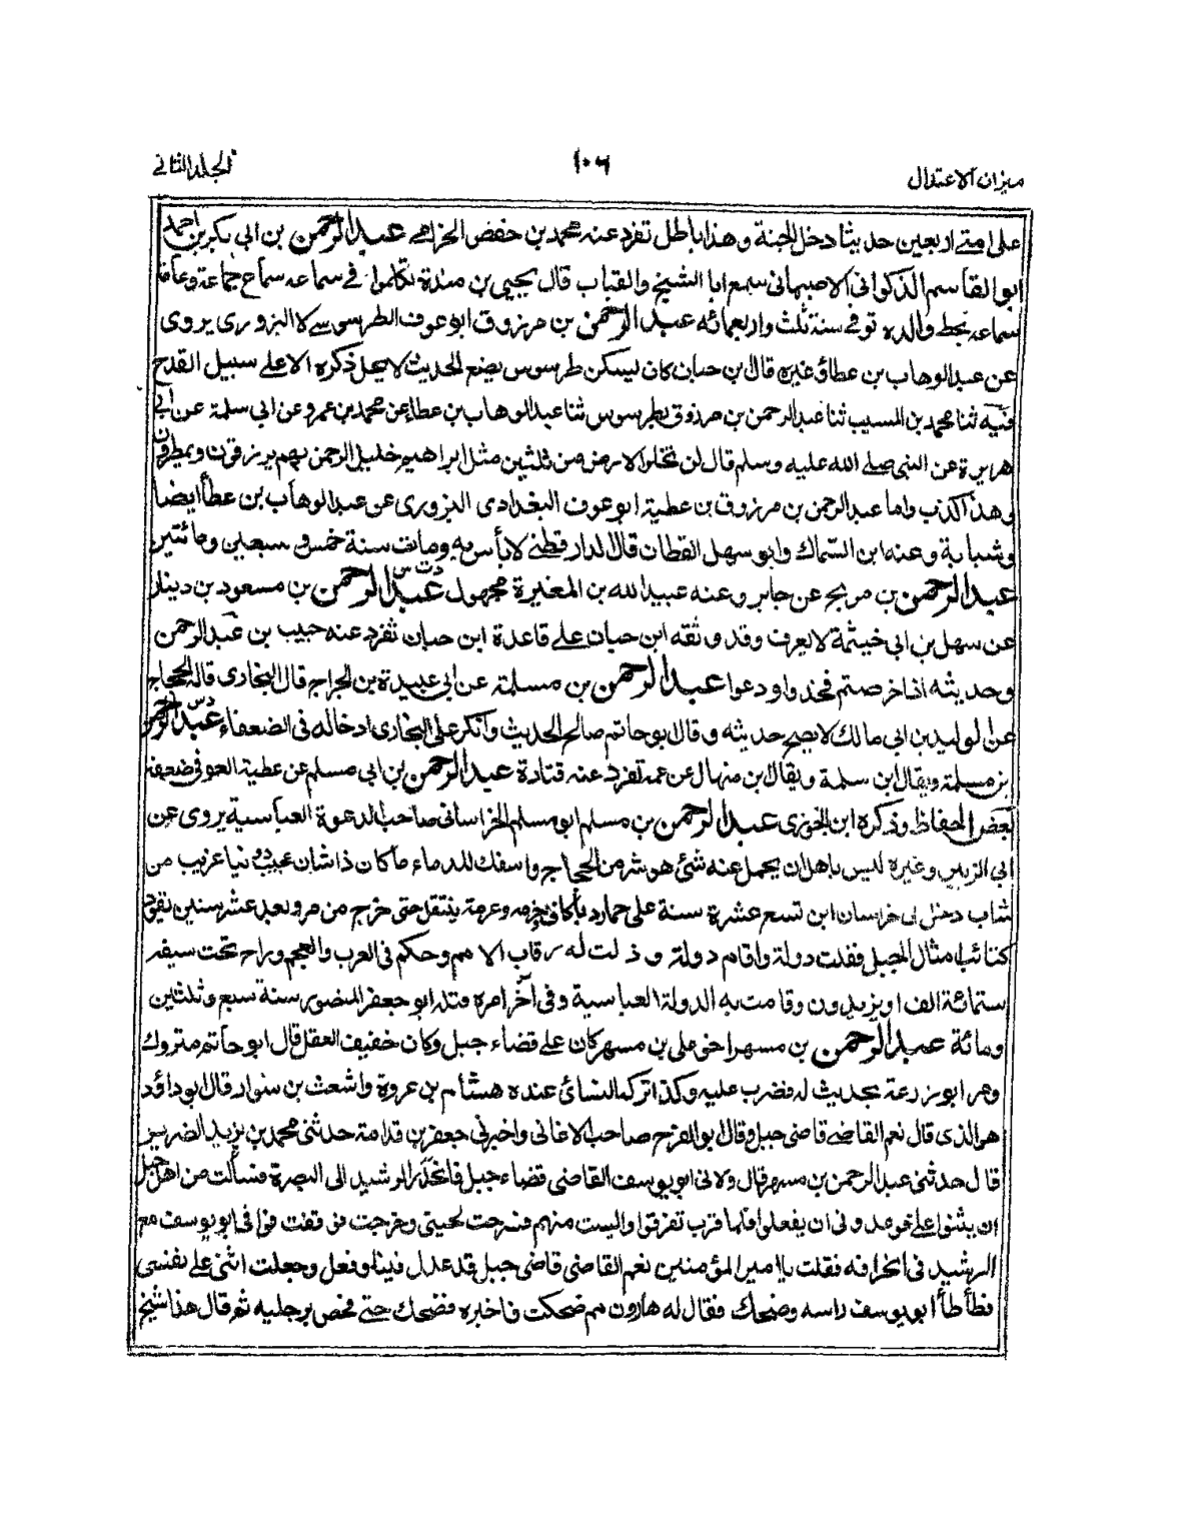 ميزان الاعتدال
١٠٦
الجلد الثاني
على امتے اربعين حديثا دخل الجنة وهذا باطل تفرد عنه محمد بن حفض الحزامے عبد الرحمن بن ابي بكر بن احمد
ابو القاسم الذكوانى الاصبهانى سمع ابا الشيخ والقباب قال يحيى بن مندة تكلموا فے سماعه سماع جماعة وعامة
سماعه بخط والده توفے سنة ثلث واربعمائه عبد الرحمن بن مرزوق ابو عوف الطرسوسے لا البزورى يروى
عن عبد الوهاب بن عطا وغيره قال بن حبان كان يسكن طرسوس يضع الحديث لا يحل ذكره الا علے سبيل القدح
فيه ثنا محمد بن المسيب ثنا عبد الرحمن بن مرزوق بطرسوس ثنا عبد الوهاب بن عطا عن محمد بن عمرو عن ابي سلمة عن ابي
هريرة عن النبي صلے الله عليه وسلم قال لن تخلوا الارض من ثلثين مثل ابراهيم خليل الرحمن بهم يرزقون ويمطرون
وهذا كذب واما عبد الرحمن بن مرزوق بن عطية ابو عوف البغدادى البزورى عن عبد الوهاب بن عطا ايضا
وشبابة وعنه ابن السماك وابو سهل القطان قال الدارقطنے لا بأس به ومات سنة خمس و سبعين ومائتين
عبد الرحمن بن مريح عن جابر وعنه عبيد الله بن المغيرة مجهول عبد الرحمن بن مسعود بن دينار
عن سهل بن ابى خيثمة لا يعرف وقد وثقه ابن حبان علے قاعدة ابن حبان تفرد عنه حبيب بن عبد الرحمن
وحديثه اذا خرصتم فخذوا ودعوا عبد الرحمن بن مسلمة عن ابى عبيدة بن الجراح قال البخارى قاله الحجاج
عن الوليد بن ابى مالك لا يصح حديثه وقال ابو حاتم صالح الحديث وانكر على البخارى ادخاله فى الضعفاء عبد الرحمن
ابن مسلمة ويقال ابن سلمة ويقال ابن منهال عن عمه تفرد عنه قتادة عبد الرحمن بن ابى مسلم عن عطية العوفى ضعيف
بعض الحفاظ وذكره ابن الجوزى عبد الرحمن بن مسلم ابو مسلم الخراسانى صاحب الدعوة العباسية يروى عن
ابى الزبير وغيره ليس باهل ان يحمل عنه شئ هو شر من الحجاج واسفك للدماء ما كان ذا شان عجيب دنيا غريب من
شاب دخل الى خراسان ابن تسع عشرة سنة على حمار باكاف حزمه وعزمة ينتقل حتى خرج من مرو بعد عشر سنين يقود
كتائب امثال الجبل فقلت دولة واقام دولة و ذلت له رقاب الا مم وحكم فى العرب والعجم وراح تحت سيفه
ستمائة الف او يزيدون وقامت به الدولة العباسية وفى آخر امره قتله ابو جعفر المنصور سنة سبع وثلثين
ومائة عبد الرحمن بن مسهر اخى على بن مسهر كان علے قضاء جبل وكان خفيف العقل قال ابو حاتم متروك
ومر ابو زرعة بحديث له فضرب عليه وكذا تركه النسائ عنده هشام بن عروة واشعث بن سنوار قال ابو داؤد
هو الذى قال نعم القاضے قاضى جبل وقال ابو الفرج صاحب الاغانى واخبرنى جعفر بن قدامة حدثنى محمد بن يزيد الضرير
قال حدثنى عبد الرحمن بن مسهر قال ولانى ابو يوسف القاضى قضاء جبل فانحدر الرشيد الى البصرة فسألت من اهل جبل
ان يثنوا علے فوعدونى ان يفعلوا فلما قرب تفرقوا وايست منهم فسرحت لحيتى وخرجت فوقفت فوافى ابو يوسف مع
الرشيد فى الحراقه فقلت يا امير المؤمنين نعم القاضى قاضى جبل قد عدل فينا وفعل وجعلت اثنى علے نفسى
فطأطأ ابو يوسف راسه وضحك فقال له هارون مم ضحكت فاخبره فضحك حتے فحص برجليه ثم قال هذا شيخ